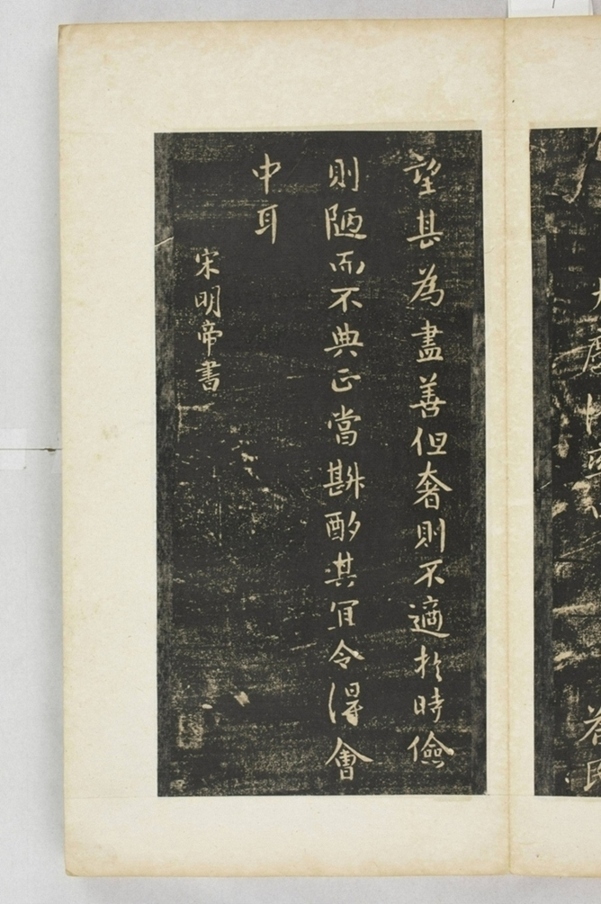 望甚為盡善但奢則不適扵時儉
則陋而不典正當斟酌其宜令得會
中耳
宋明帝書